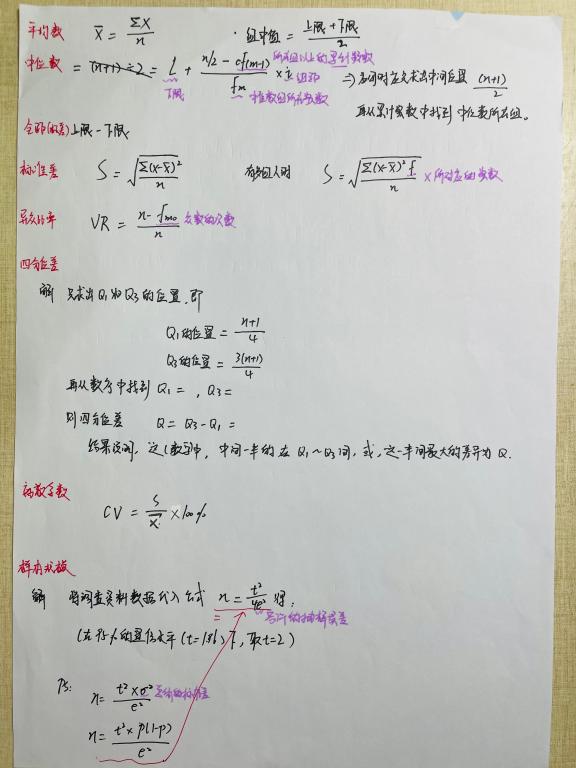 平均数 X̄ = ΣX/n · 组中值 = (上限+下限)/2
中位数 = (n+1)÷2 = L + (n/2 - cf(m-1))/fm × i 所在组以上的累计次数 组距
下限 中位数组所在次数
⇒ 分组时应先求出中间位置 (n+1)/2
再从累计次数中找到中位数所在组。
全距(极差) 上限 - 下限
标准差 S = √(Σ(x-x̄)²/n) 有分组时 S = √(Σ(x-x̄)² f/n) × 所对应的次数
异众比率 VR = (n - fmo)/n 众数的次数
四分位差
解 先求出 Q1 和 Q3 的位置,即
Q1的位置 = (n+1)/4
Q3的位置 = 3(n+1)/4
再从数序中找到 Q1 = , Q3 =
则四分位差 Q = Q3 - Q1 =
结果说明, 这(数字)中, 中间一半的在 Q1~Q3间, 或,这一半间最大的差异为 Q.
离散系数
CV = S/X̄ × 100%
样本规模
解 将调查资料数据代入公式 n = t²/4e² 得:
允许的抽样误差
(在95%的置信水平(t=1.96)下, 取t=2)
Ps: n = t²×σ²/e² 总体的标准差
n = t²×p(1-p)/e²